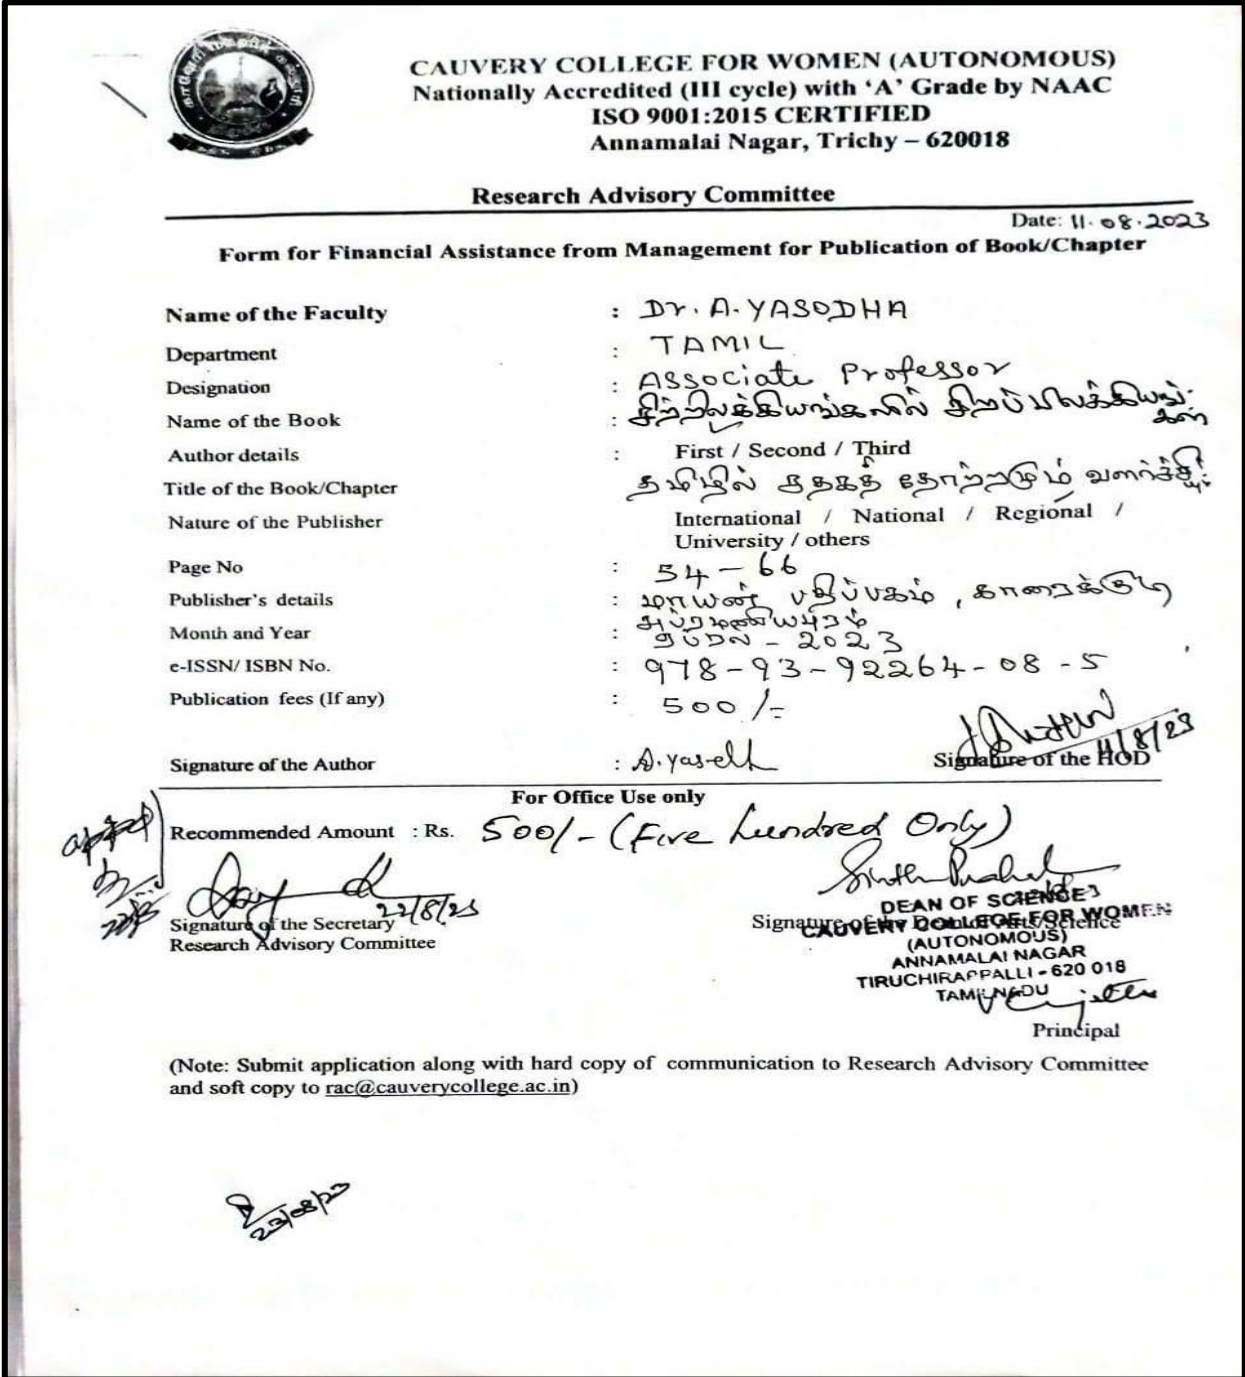 CAUVERY COLLEGE FOR WOMEN (AUTONOMOUS)
Nationally Accredited (III cycle) with ‘A’ Grade by NAAC
ISO 9001:2015 CERTIFIED
Annamalai Nagar, Trichy – 620018
Research Advisory Committee
Date: 11.08.2023
Form for Financial Assistance from Management for Publication of Book/Chapter
Name of the Faculty : Dr. A. YASODHA
Department : TAMIL
Designation : Associate Professor
Name of the Book : சிற்றிலக்கியங்களில் சிறப்பிலக்கியங்கள்
Author details : First / Second / Third
Title of the Book/Chapter தமிழில் தோற்றமும் வளர்ச்சியும்
Nature of the Publisher International / National / Regional /
University / others
Page No : 54 – 66
Publisher's details : மாயன் பதிப்பகம், காரைக்குடி
சுப்ரமணியபுரம்
Month and Year : ஏப்ரல் – 2023
e-ISSN/ ISBN No. : 978-93-92264-08-5
Publication fees (If any) : 500/-
Signature of the Author : A. Yasodh
Signature of the HOD 11/8/23
For Office Use only
Recommended Amount : Rs. 500/- (Five hundred Only)
22/8/23
Signature of the Secretary
Research Advisory Committee
DEAN OF SCIENCE
Signature of the Dean of Arts/Science
CAUVERY COLLEGE FOR WOMEN
(AUTONOMOUS)
ANNAMALAI NAGAR
TIRUCHIRAPPALLI - 620 018
TAMIL NADU
Principal
(Note: Submit application along with hard copy of communication to Research Advisory Committee
and soft copy to rac@cauverycollege.ac.in)
23/08/23